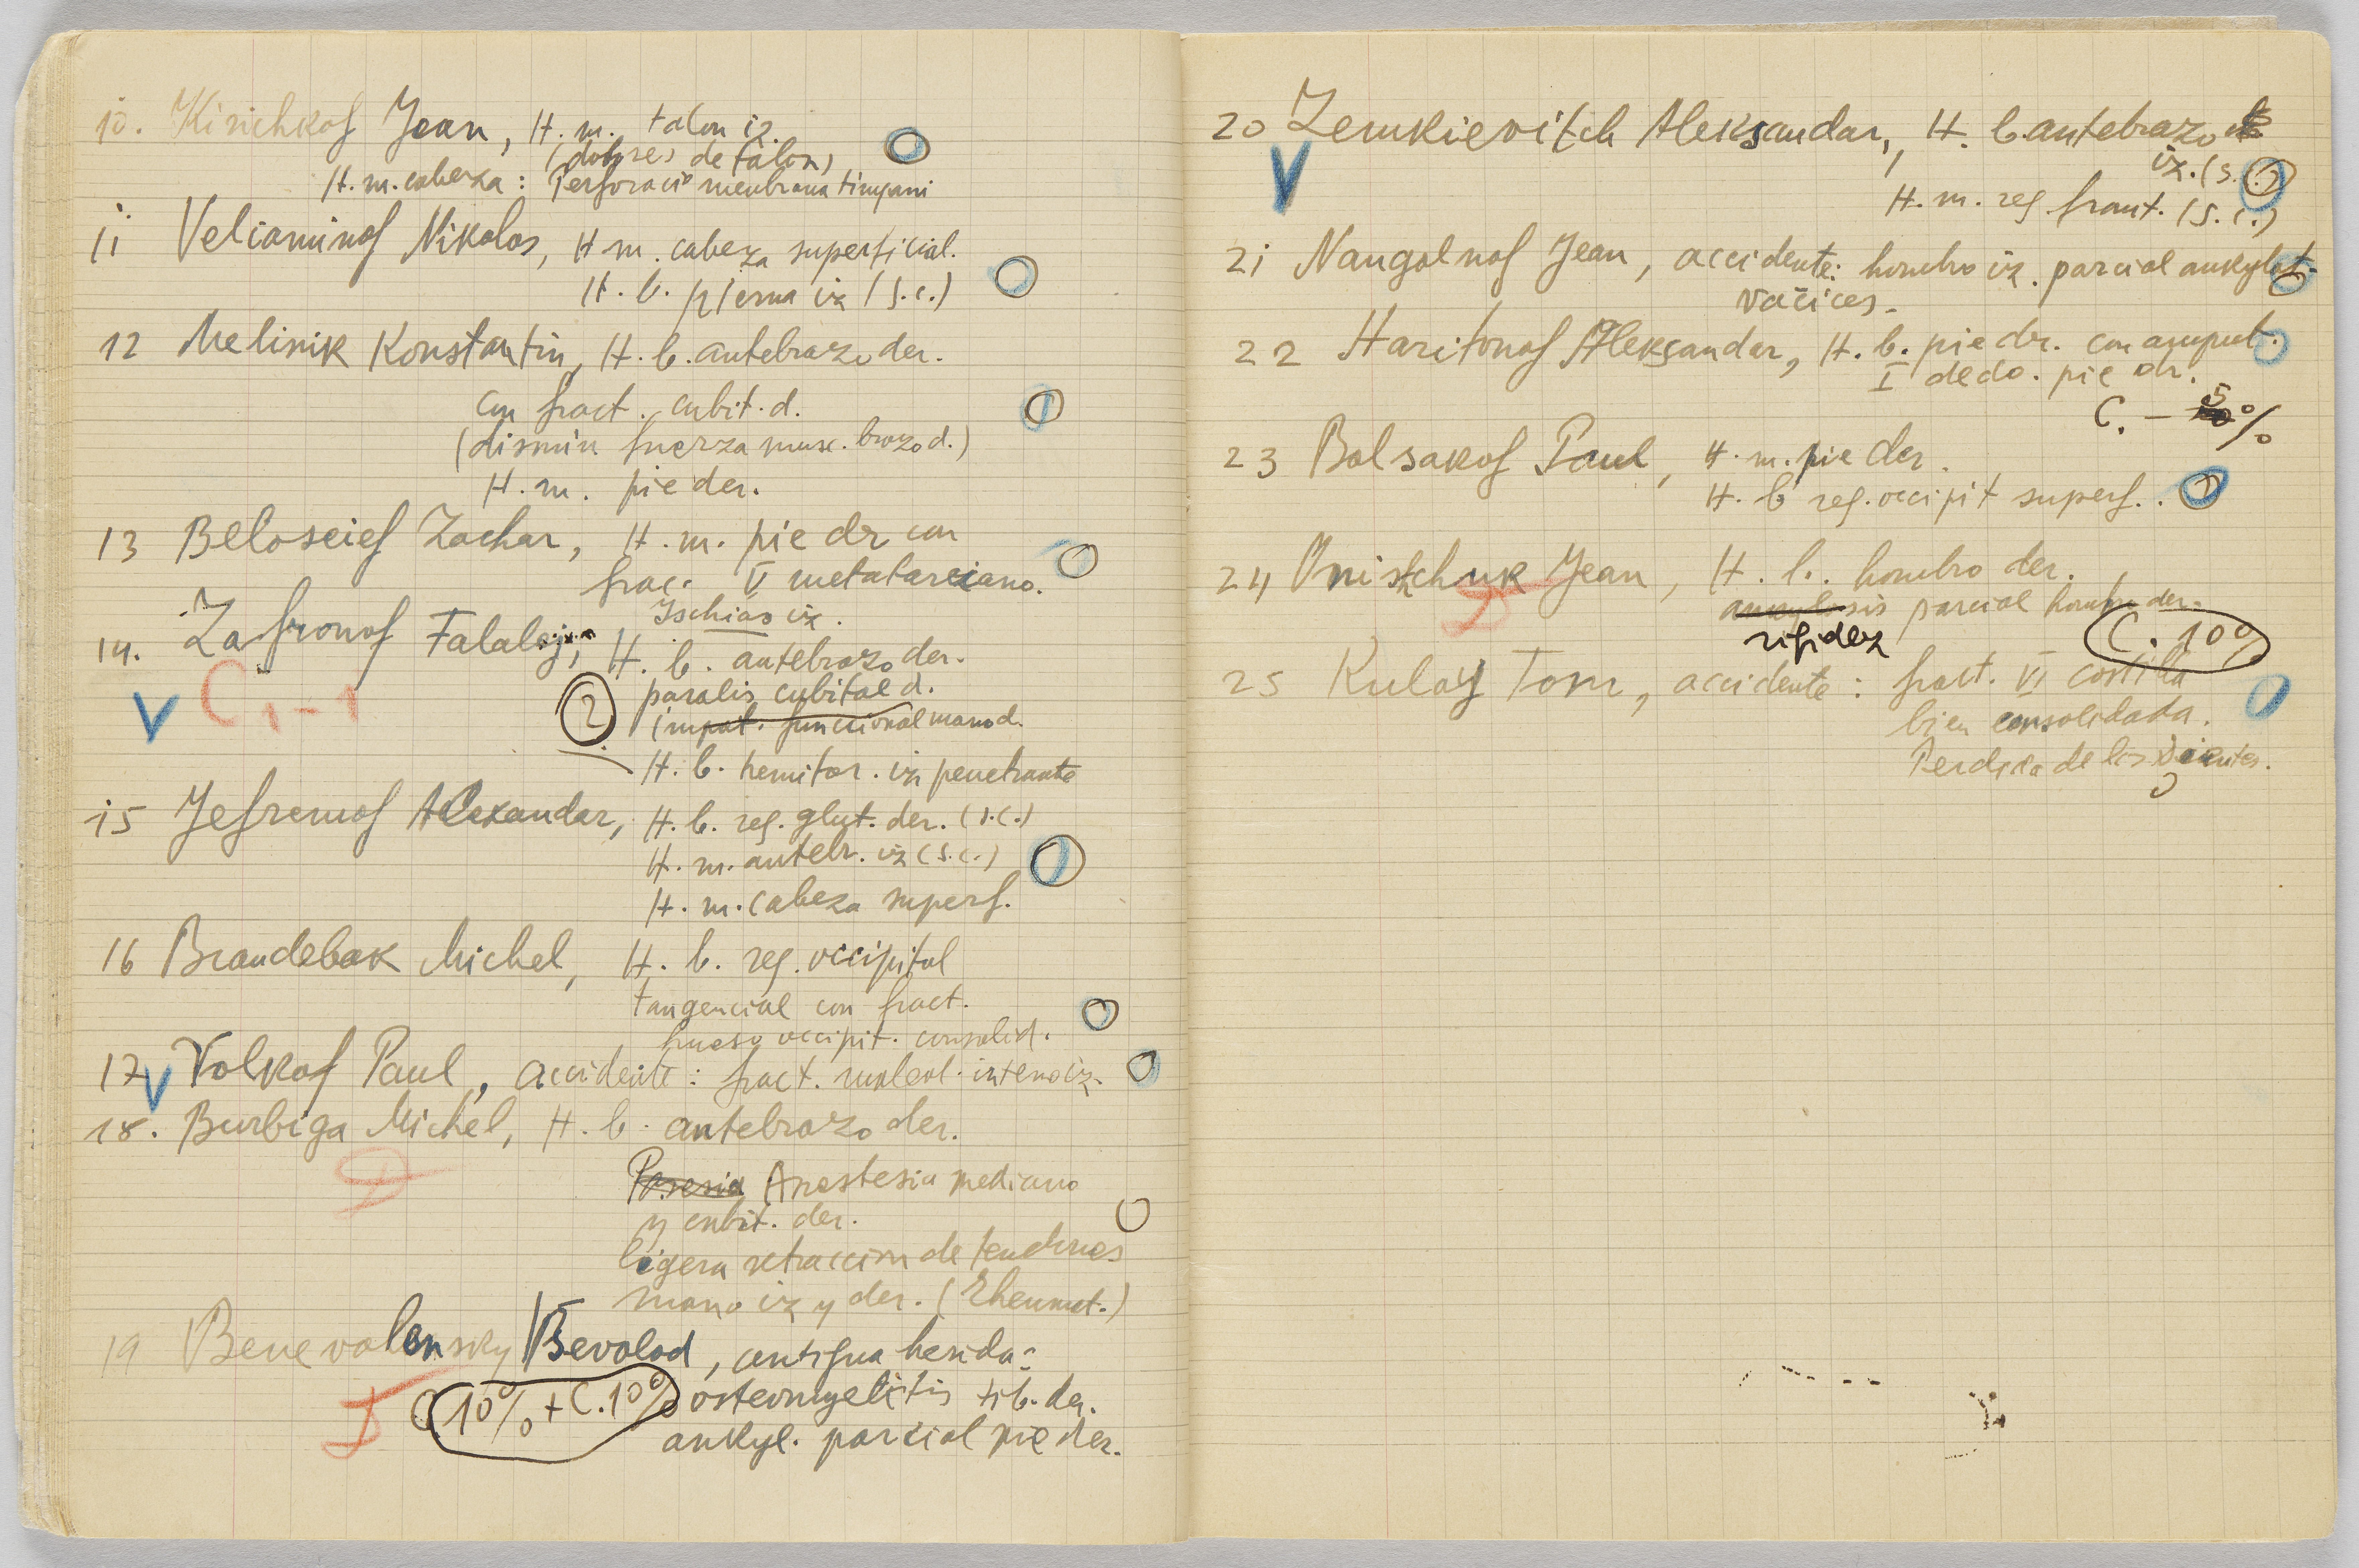 10. Kirichkof Jean, H. m. talon iz.
(dolores de talon)
H. m. cabeza: Perforació membrana timpani
11 Veliaminof Nikolas, H m. cabeza superficial.
H. b. pierna iz (s.c.)
12 Melinik Konstantin, H. b. antebrazo der.
con fract. cubit. d.
(dismin fuerza musc. brazo d.)
H. m. pie der.
13 Beloseief Zachar, H. m. pie dr con
frac. V metatarsiano.
Ischias iz.
14. Zafronof Falalej, H. b. antebrazo der.
paralis cubital d.
C 1-1
2 impot. funccional mano d.
H. b. hemitor. iz penetrante
15 Jefremof Alexandar, H. b. reg. glut. der. (s.c.)
H. m. antebr. iz (s.c.)
H. m. cabeza superf.
16 Brandebak Michel, H. b. reg. occipital
tangencial con fract.
hueso occipit. consolid.
17 Volkof Paul, accidente: fract. maleol. interno iz.
18. Burbiga Michel, H. b. antebrazo der.
Paresia Anestesia mediano
y cubit. der.
ligera retraccion de tendones
mano iz y der. (Rheumat.)
19 Benevolensky Vsevolod, antigua herida:
C 10% + C. 10% osteomyelitis tib. der.
ankyl. parcial pie der.
20 Zemkievitch Aleksandar, H. b. antebrazo
iz. (s.c.)
H. m. reg. front. (s.c.)
21 Nangolnof Jean, accidente: hombro iz. parcial ankylot.
varices.
22 Haritonof Aleksandar, H. b. pie dr. con amput.
I dedo. pie dr.
C. - 5%
23 Bolsakof Paul, H. m. pie der.
H. b reg. occipit superf.
24 Onistchuk Jean, H. b. hombro der.
ankylosis parcial hombro der.
rigidez C. 10%
25 Kulay Tom, accidente: fract. VI costilla
bien consolidada.
Perdida de los Dientes.